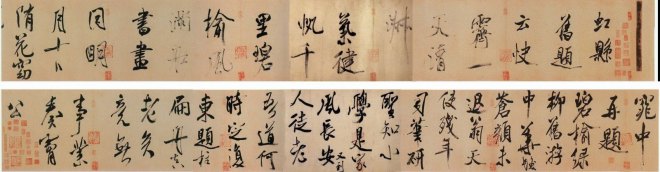 虹縣
舊題
云快
霽一
天清
淑
氣健
帆千
里碧
榆風
滿船
書畫
同明
月十日
隋花窈
窕中
再題
碧榆綠
柳舊游
中華髮
蒼顏未
退翁天
使殘年
司筆研
聖知小
學是家
風長安又到
人徒老
吾道何
時定復
東題柱
扁舟真
老矣
竟無
事業
奏膚
公